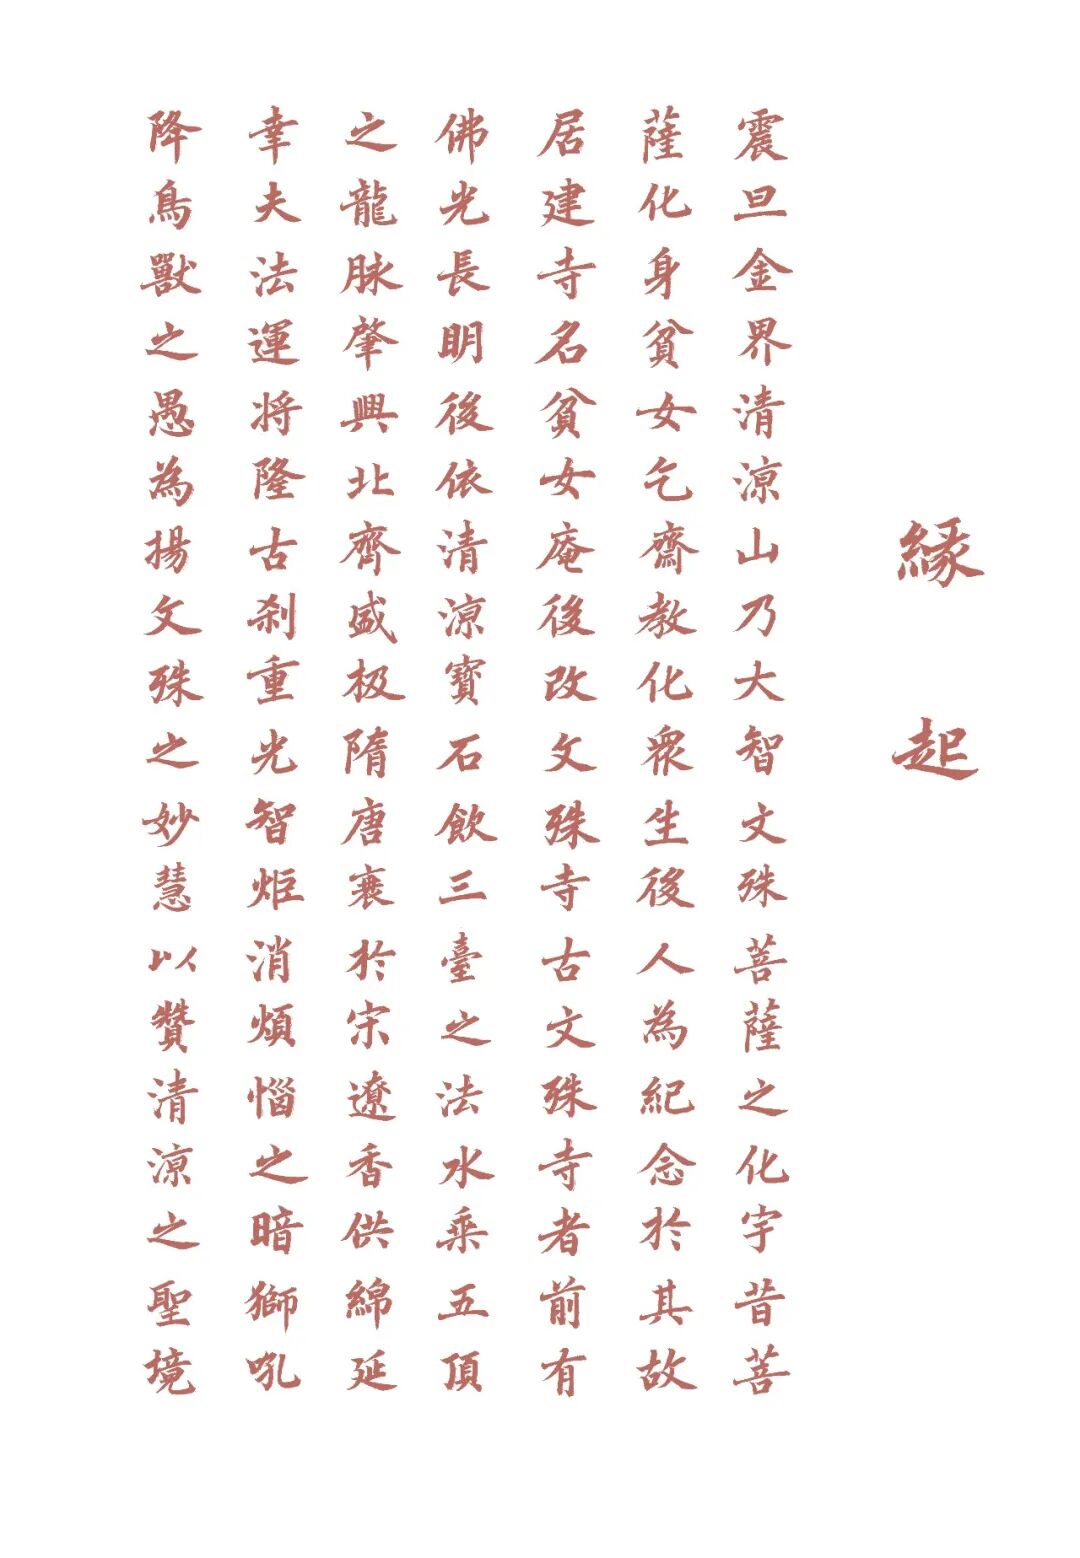 緣起
震旦金界清涼山乃大智文殊菩薩之化宇昔菩
薩化身貧女乞齋教化衆生後人為紀念於其故
居建寺名貧女庵後改文殊寺古文殊寺者前有
佛光長明後依清涼寶石飲三臺之法水乘五頂
之龍脉肇興北齊盛极隋唐衰於宋遼香供綿延
幸夫法運将隆古刹重光智炬消煩惱之暗獅吼
降鳥獸之愚為揚文殊之妙慧以贊清涼之聖境